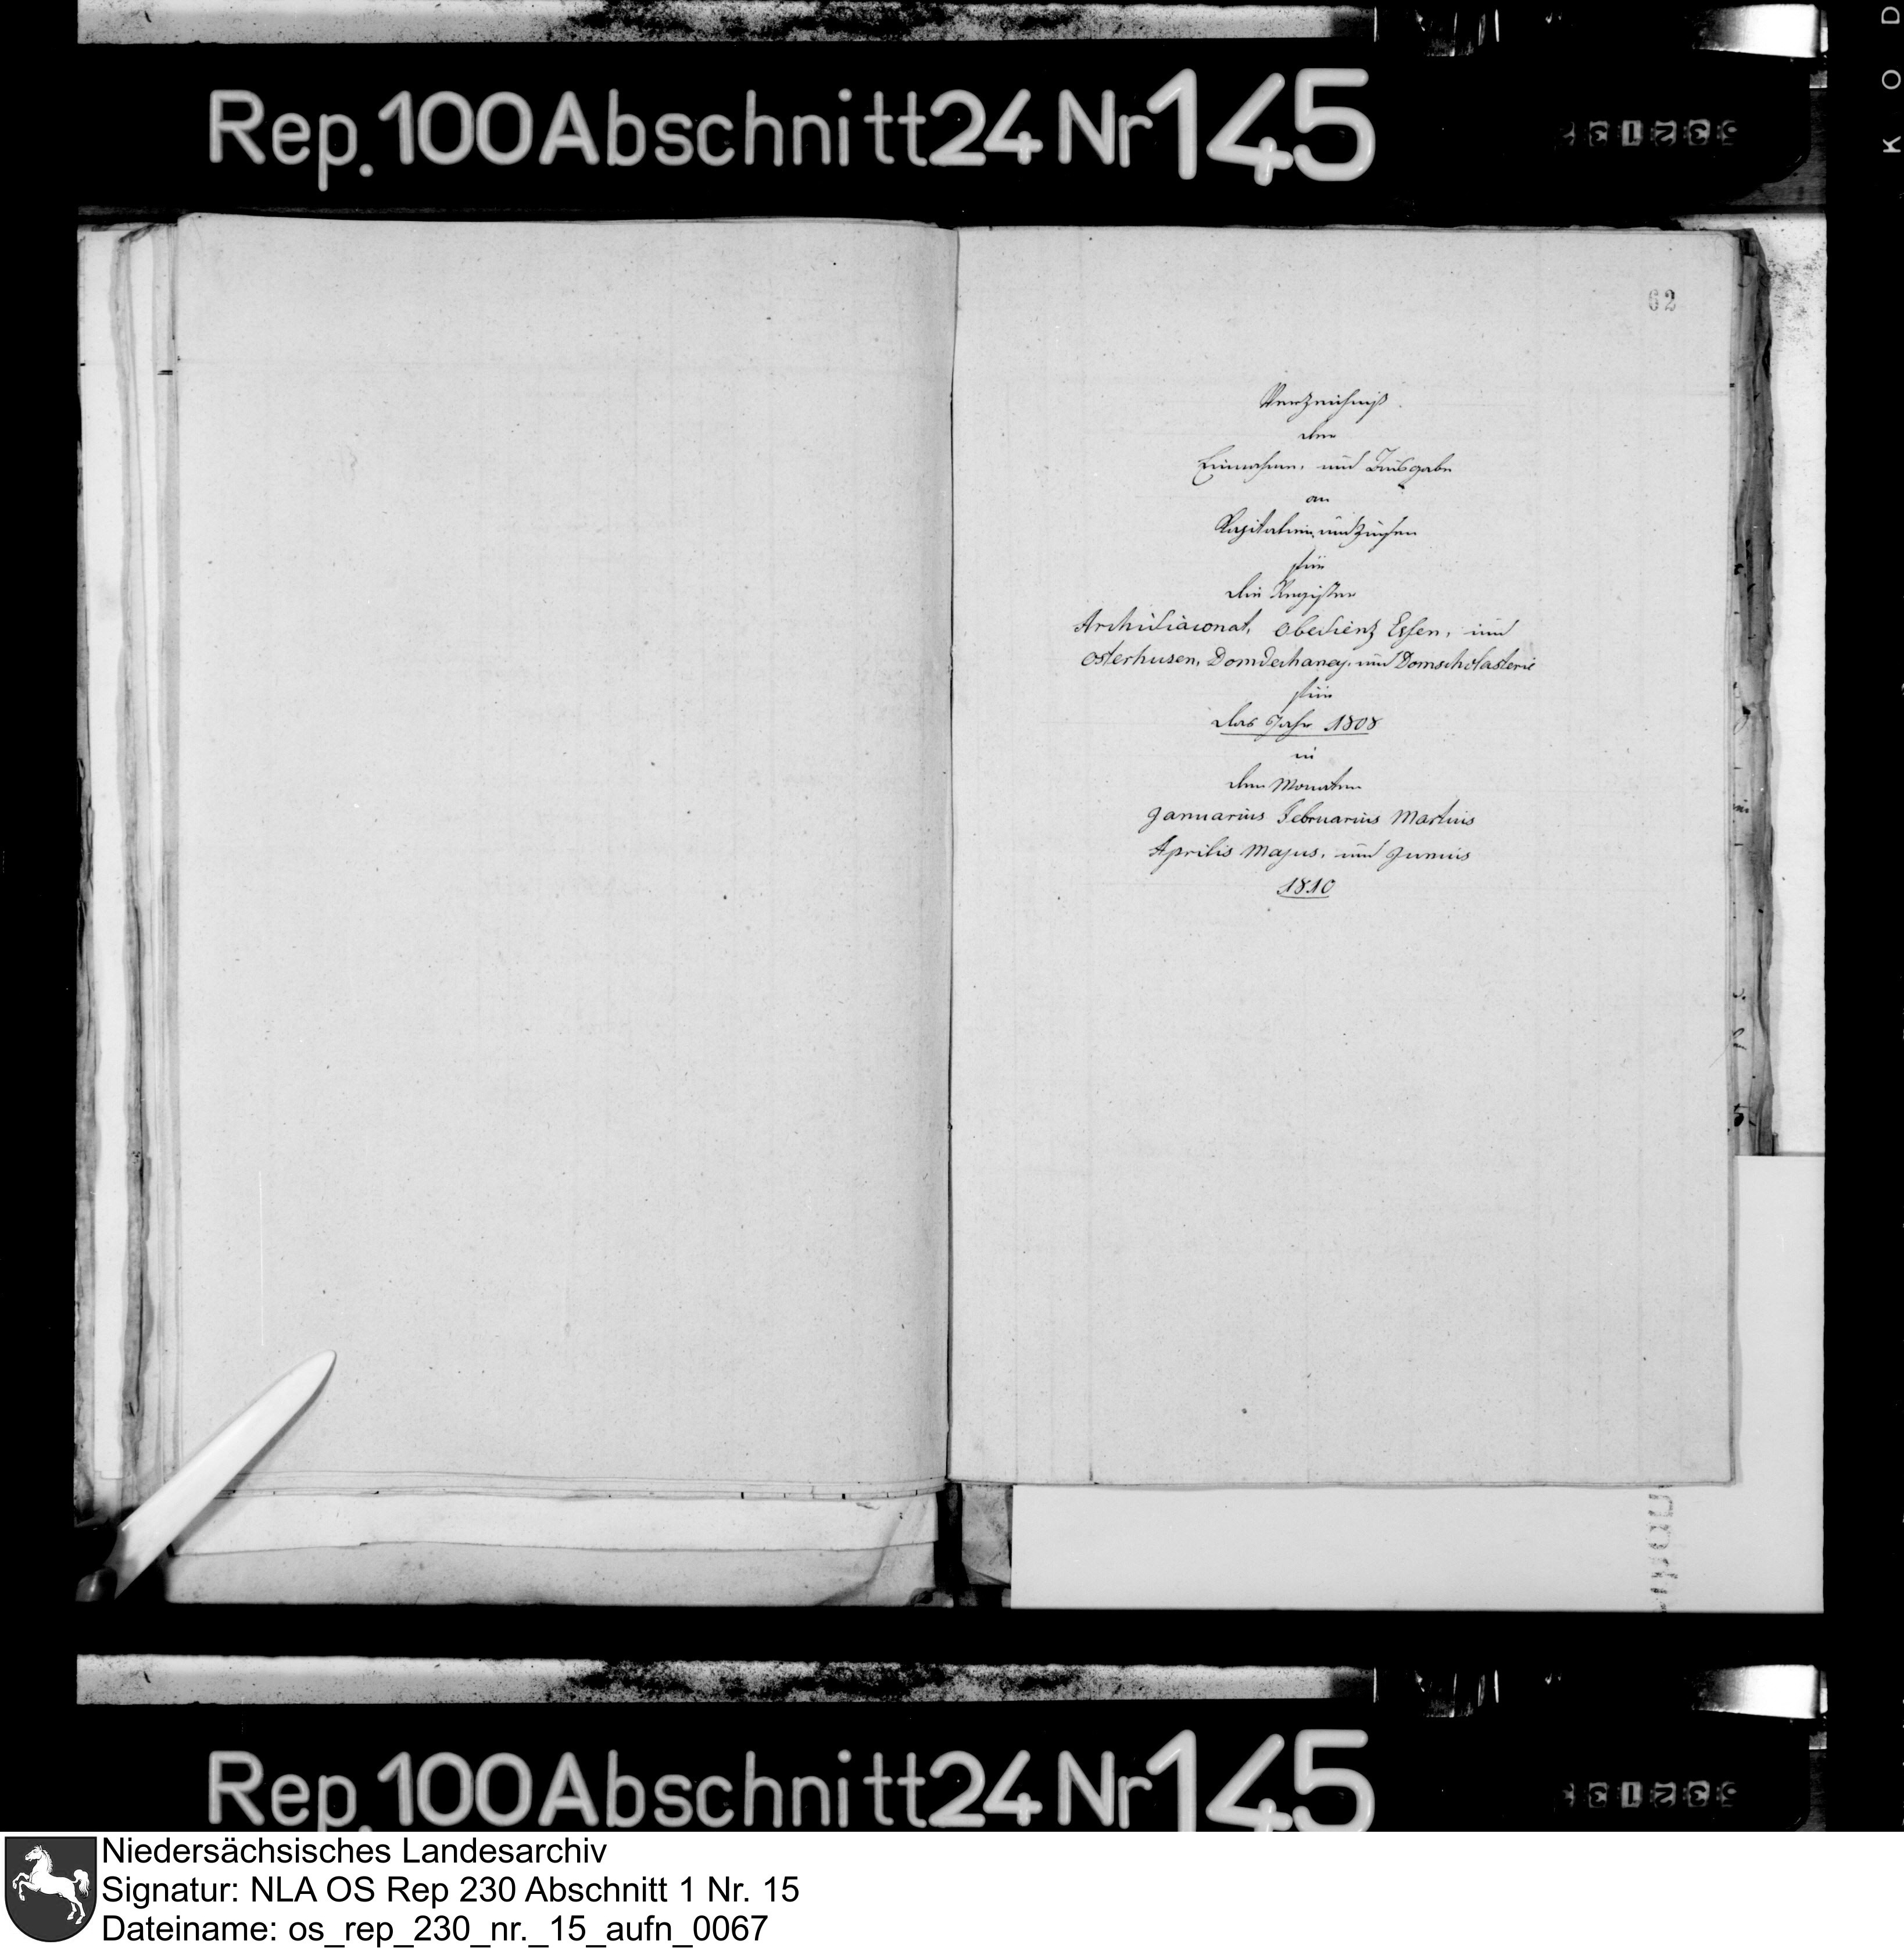 Rep. 100 Abschnitt 24 Nr 145
KOD
62
Verzeichniß
der
Einnahme, und Ausgabe
an
Kapitalien und Zinsen
für
die Register
Archidiaconat, Obedienz Essen, und
Osterhusen, Domdechaney, und Domscholasterie
für
das Jahr 1808
in
den Monaten
Januarius Februarius Martius
Aprilis Majus, und Junius
1810
Rep. 100 Abschnitt 24 Nr 145
Niedersächsisches Landesarchiv
Signatur: NLA OS Rep 230 Abschnitt 1 Nr. 15
Dateiname: os_rep_230_nr._15_aufn_0067